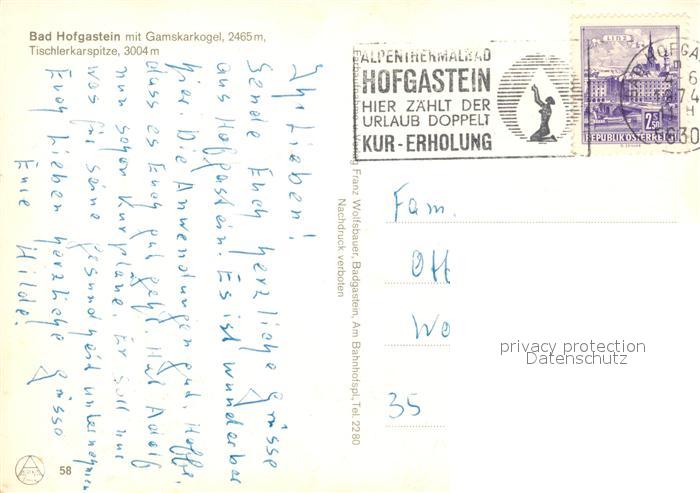 Bad Hofgastein mit Gamskarkogel, 2465 m,
Tischlerkarspitze, 3004 m
Ihr Lieben!
Sende Euch herzliche Grüsse
aus Hofgastein. Es ist wunderbar
hier. Die Anwendungen gut. Hoffe,
dass es Euch gut geht. Hat Adolf
nun schon Kurpläne. Er soll nur
was für seine Gesundheit unternehmen
Euch Lieben herzliche Grüsse
Eure Hilde.
58
Farbaufnahme u. Verlag Franz Wolfsbauer, Badgastein, Am Bahnhofspl., Tel. 2280
Nachdruck verboten
ALPENTHERMALBAD
HOFGASTEIN
HIER ZÄHLT DER
URLAUB DOPPELT
KUR-ERHOLUNG
LINZ
2.50 S
REPUBLIK ÖSTERREICH
HOFGA
6
74
630
Fam.
Ott
Wo
35
privacy protection
Datenschutz